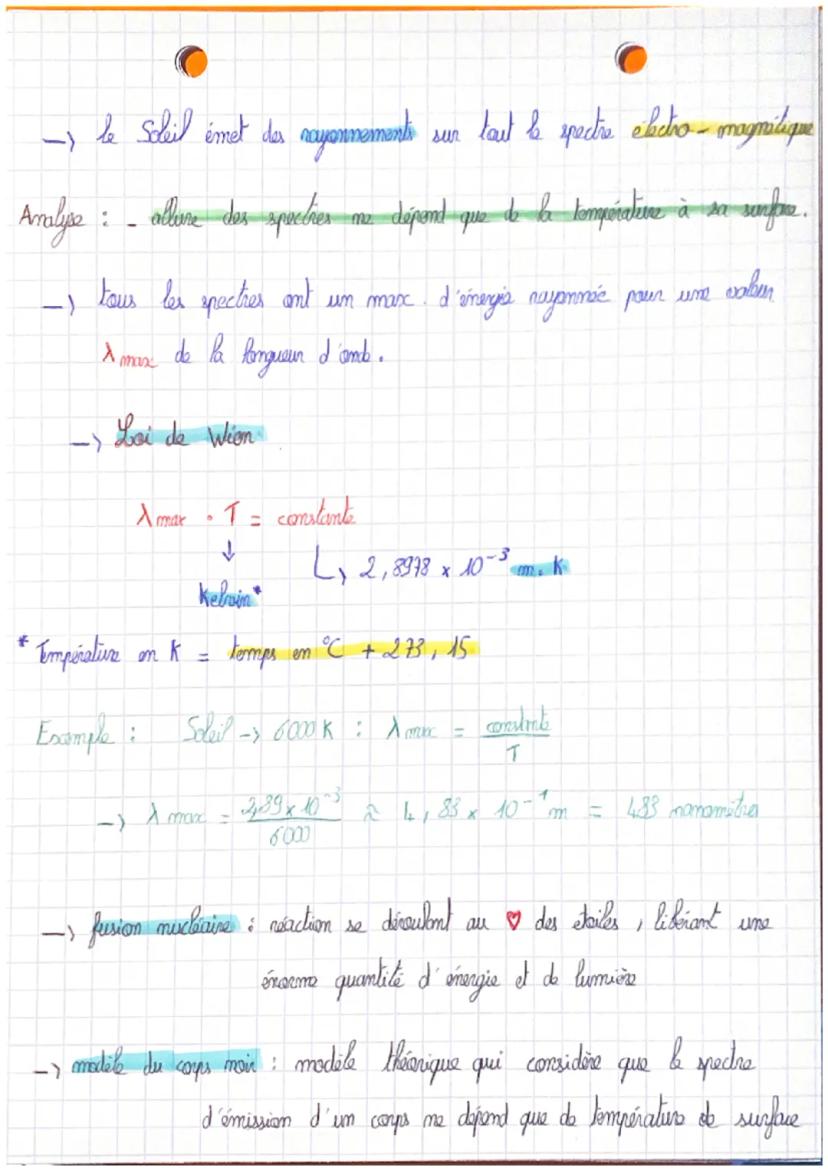 → le Soleil émet des rayonnements sur tout le spectre électro-magnétique
Analyse : - allure des spectres ne dépend que de la température à sa surface.
→ tous les spectres ont un max. d'énergie rayonnée pour une valeur
λ max de la longueur d'ond.
→ Loi de Wien
λ max · T = constante
↓ ↳ 2,8978 × 10⁻³ m. K
Kelvin*
* Température en K = temps en °C + 273,15
Exemple : Soleil → 6000 K : λ max = constante / T
→ λ max = 2,89 × 10⁻³ / 6000 ≈ 4,83 × 10⁻⁷ m = 483 nanomètres
→ fusion nucléaire : réaction se déroulant au ♥ des étoiles, libérant une
énorme quantité d'énergie et de lumière
→ modèle du corps noir : modèle théorique qui considère que le spectre
d'émission d'un corps ne dépend que de température de surface